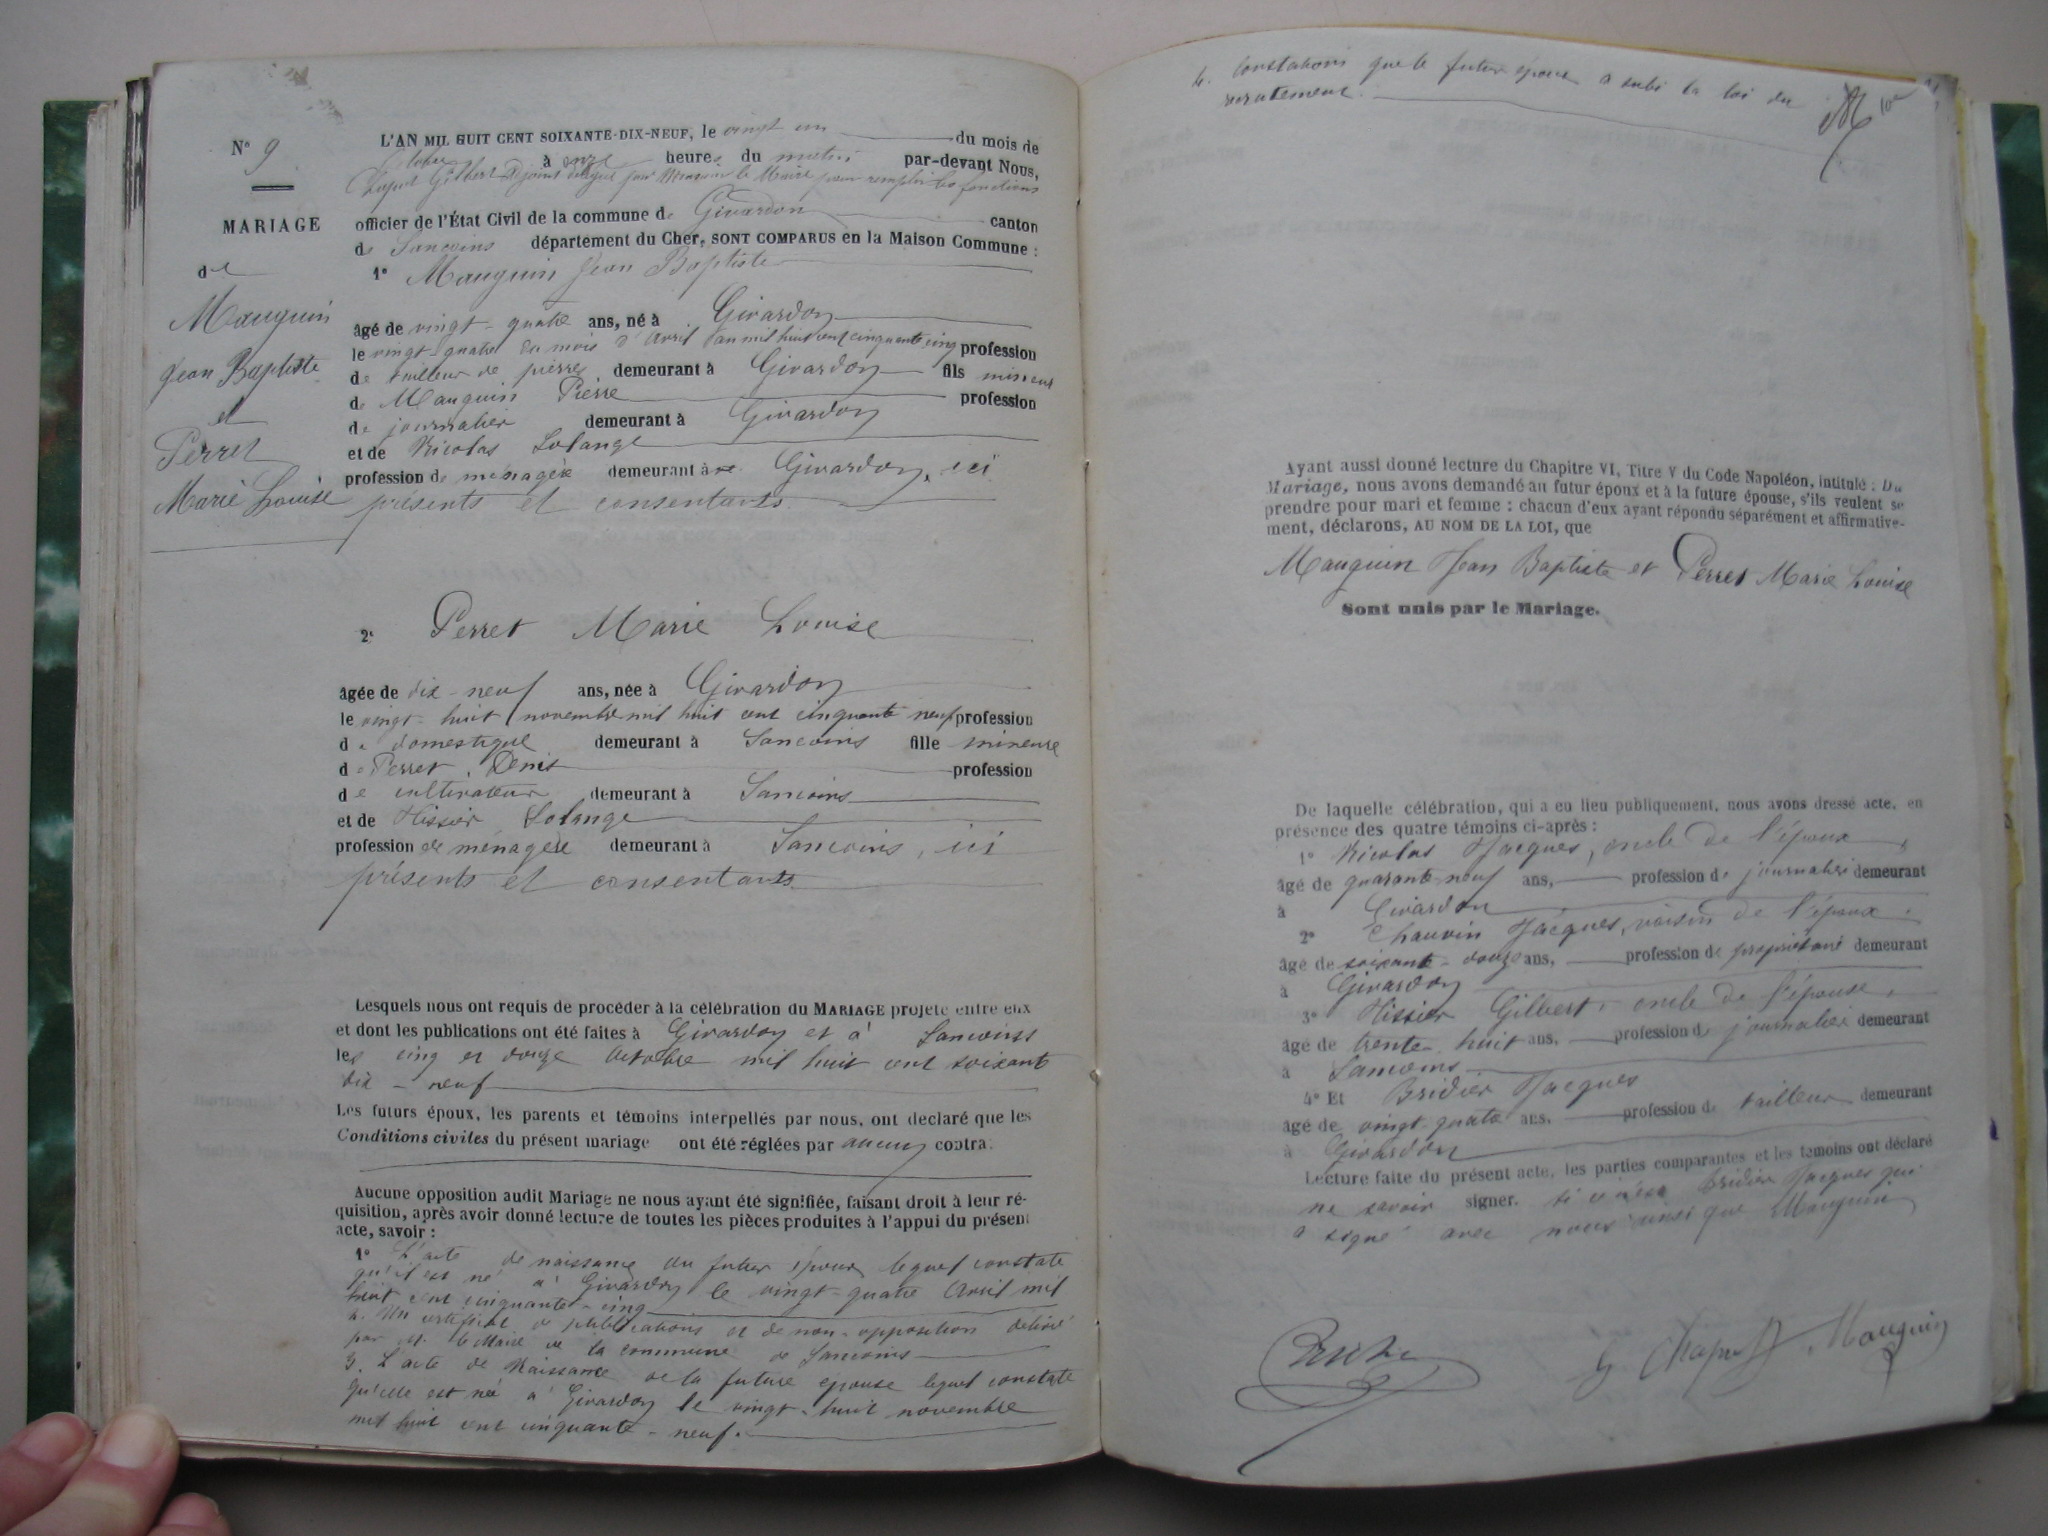 N° 9
MARIAGE
de
Mauguin
Jean Baptiste
et
Perret
Marie Louise
L'AN MIL HUIT CENT SOIXANTE-DIX-NEUF, le vingt un du mois de
à onze heures du matin par-devant Nous,
Gilbert Adjoint délégué par Monsieur le Maire pour remplir les fonctions
officier de l'État Civil de la commune de Givardon canton
de Sancoins département du Cher, SONT COMPARUS en la Maison Commune :
1° Mauguin Jean Baptiste
âgé de vingt-quatre ans, né à Givardon
le vingt-quatre du mois d'Avril l'an mil huit cent cinquante cinq profession
de tailleur de pierres demeurant à Givardon fils mineur
de Mauguin Pierre profession
de journalier demeurant à Givardon
et de Nicolas Solange
profession de ménagère demeurant à Givardon, ici
présents et consentants
2° Perret Marie Louise
âgée de dix-neuf ans, née à Givardon
le vingt-huit novembre mil huit cent cinquante neuf profession
de domestique demeurant à Sancoins fille mineure
de Perret Denis profession
de cultivateur demeurant à Sancoins
et de Hissier Solange
profession de ménagère demeurant à Sancoins, ici
présents et consentants
Lesquels nous ont requis de procéder à la célébration du MARIAGE projeté entre eux
et dont les publications ont été faites à Givardon et à Sancoins
les cinq et douze Octobre mil huit cent soixante
dix-neuf
Les futurs époux, les parents et témoins interpellés par nous, ont déclaré que les
Conditions civiles du présent mariage ont été réglées par aucun contra.
Aucune opposition audit Mariage ne nous ayant été signifiée, faisant droit à leur ré-
quisition, après avoir donné lecture de toutes les pièces produites à l'appui du présent
acte, savoir :
1° L'acte de naissance du futur époux lequel constate
qu'il est né à Givardon le vingt-quatre Avril mil
huit cent cinquante-cinq
2. Un certificat de publications et de non-opposition délivré
par M. le Maire de la commune de Sancoins
3. L'acte de Naissance de la future épouse lequel constate
qu'elle est née à Givardon le vingt-huit novembre
mil huit cent cinquante-neuf.
4. Constatons que le futur époux a subi la loi du
recrutement.
Ayant aussi donné lecture du Chapitre VI, Titre V du Code Napoléon, intitulé : Du
Mariage, nous avons demandé au futur époux et à la future épouse, s'ils veulent se
prendre pour mari et femme : chacun d'eux ayant répondu séparément et affirmative-
ment, déclarons, AU NOM DE LA LOI, que
Mauguin Jean Baptiste et Perret Marie Louise
Sont unis par le Mariage.
De laquelle célébration, qui a eu lieu publiquement, nous avons dressé acte, en
présence des quatre témoins ci-après :
1° Nicolas Jacques, oncle de l'époux,
âgé de quarante-neuf ans, profession de journalier demeurant
à Givardon
2° Chauvin Jacques, voisin de l'époux.
âgé de soixante-douze ans, profession de propriétaire demeurant
à Givardon
3° Hissier Gilbert, oncle de l'épouse,
âgé de trente-huit ans, profession de journalier demeurant
à Sancoins
4° Et Bridier Jacques
âgé de vingt-quatre ans, profession de tailleur demeurant
à Givardon
Lecture faite du présent acte, les parties comparantes et les témoins ont déclaré
ne savoir signer. si ce n'est Bridier Jacques qui
a signé avec nous ainsi que Mauguin
G Mauguin